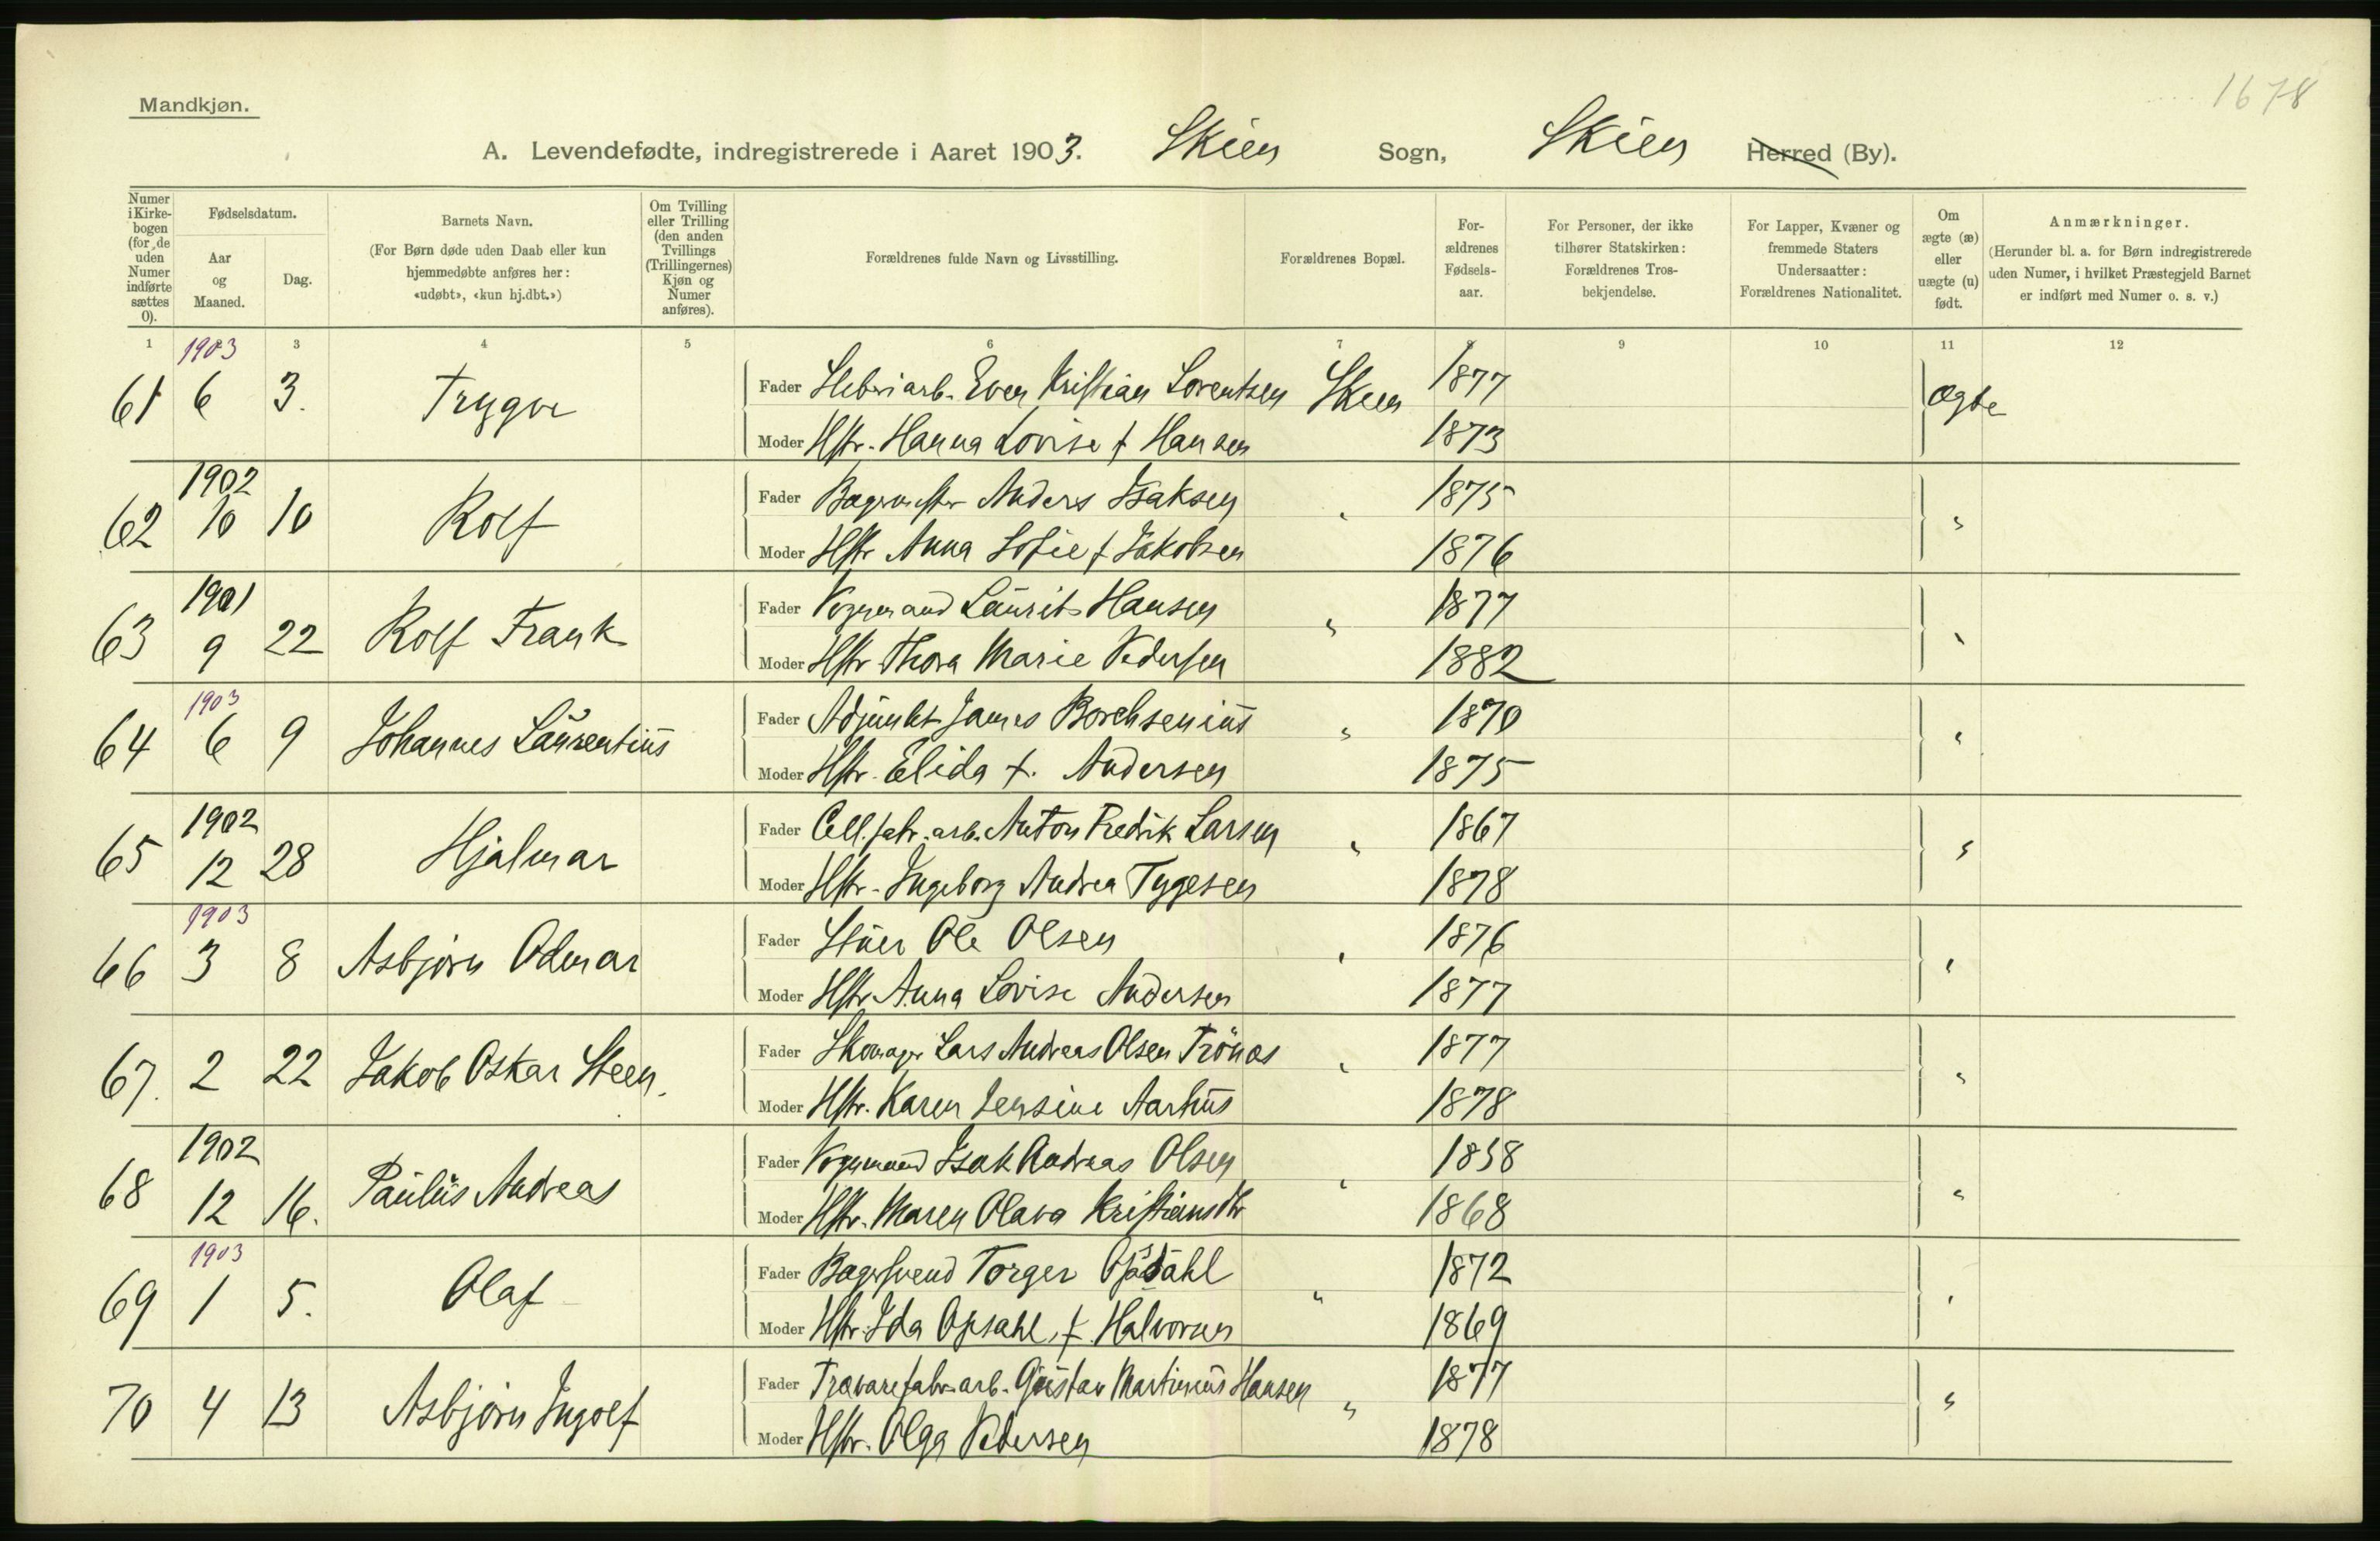 1678
Mandkjøn.
A. Levendefødte, indregistrerede i Aaret 1903. Skien Sogn, Skien Herred (By).
Numer i Kirkebogen (for de uden Numer indførte sættes 0).
Fødselsdatum.
Aar og Maaned.
Dag.
Barnets Navn.
(For Børn døde uden Daab eller kun hjemmedøbte anføres her: «udøbt», «kun hj.dbt.»)
Om Tvilling eller Trilling (den anden Tvillings (Trillingernes) Kjøn og Numer anføres).
Forældrenes fulde Navn og Livsstilling.
Forældrenes Bopæl.
Forældrenes Fødselsaar.
For Personer, der ikke tilhører Statskirken: Forældrenes Trosbekjendelse.
For Lapper, Kvæner og fremmede Staters Undersaatter: Forældrenes Nationalitet.
Om ægte (æ) eller uægte (u) født.
Anmærkninger.
(Herunder bl. a. for Børn indregistrerede uden Numer, i hvilket Præstegjeld Barnet er indført med Numer o. s. v.)
1 3 4 5 6 7 8 9 10 11 12
1903
61 6 3. Trygve Fader Sliberiarb. Even Kristian Lorentsen Skien 1877 Ægte
Moder Hstr. Hanna Lovise f Hansen 1873
1902
62 10 10 Rolf Fader Bagermester Anders Isaksen " 1875 "
Moder Hstr Anna Sofie f Jakobsen 1876
1901
63 9 22 Rolf Frank Fader Vognmand Laurits Hansen " 1877 "
Moder Hstr Thora Marie Pedersen 1882
1903
64 6 9 Johannes Laurentius Fader Adjunkt James Borchsenius " 1870 "
Moder Hstr. Elida f. Andersen 1875
1902
65 12 28 Hjalmar Fader Cell.fabr.arb. Anton Fredrik Larsen " 1867 "
Moder Hstr. Ingeborg Andrea Tygesen 1878
1903
66 3 8 Asbjørn Odmar Fader Stuer Ole Olsen " 1876 "
Moder Hstr. Anna Lovise Andersen 1877
67. 2 22 Jakob Oskar Steen. Fader Skomager Lars Andreas Olsen Trönas " 1877 "
Moder Hstr. Karen Jensine Aarhus 1878
1902
68 12 16. Paulus Andreas Fader Vognmand Isak Andreas Olsen " 1858 "
Moder Hstr. Maren Olava Kristiansdtr 1868
1903
69 1 5. Olaf Fader Bagersvend Torger Opsahl " 1872 "
Moder Hstr. Ida Opsahl, f. Halvorsen 1869
70 4 13 Asbjørn Ingolf Fader Trævarefabr.arb. Gustav Martinius Hansen " 1877 "
Moder Hstr. Olga Pedersen 1878